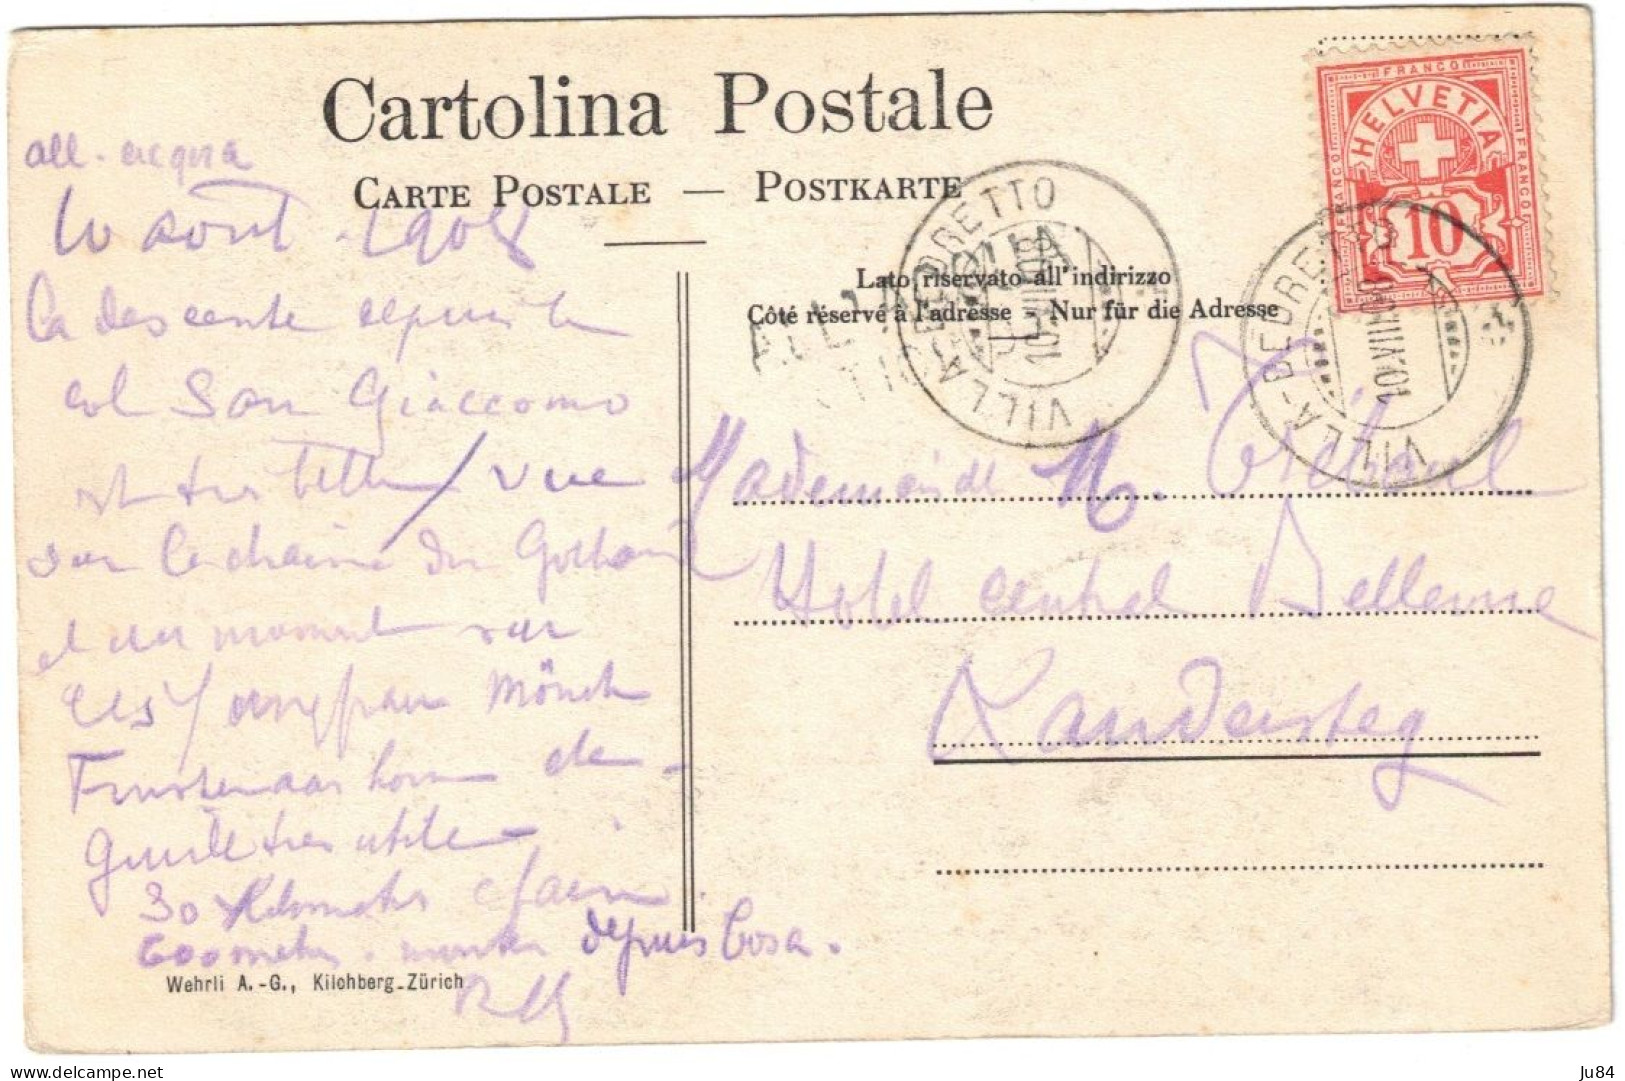 Cartolina Postale
CARTE POSTALE — POSTKARTE
Lato riservato all' indirizzo
Côté réservé à l'adresse - Nur für die Adresse
FRANCO
HELVETIA
FRANCO
FRANCO
10
VILLA-BEDRETTO
10.VIII.08
VILLA-BEDRETTO
10.VIII.08
ALL'ACQUA
all. acqua
10 août 1908
La descente depuis le
col San Giaccomo
est très belle / vue
sur la chaine du Gothard
et un moment sur
les Jungfrau Mönch
Finsteraarhorn etc -
guide très utile -
30 Kilometres
600 metres. depuis
R
Mademoiselle M.
Hotel Central Bellevue
Kandersteg
Wehrli A.-G., Kilchberg-Zürich
Ju84